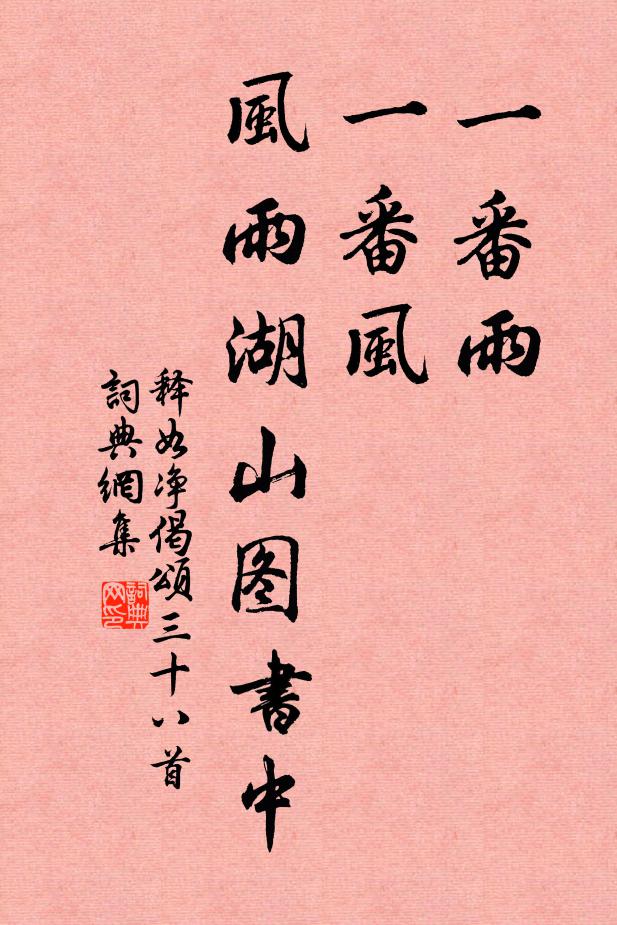 一番雨
一番風
風雨湖山图書中
释如净偈頌三十八首
詞典網集
詞典网印